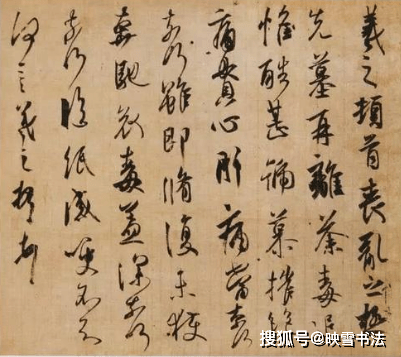 羲之頓首喪亂之極
先墓再離荼毒追
惟酷甚號慕摧絕
痛貫心肝痛當奈何
奈何雖即脩復未獲
奔馳哀毒益深奈何
奈何臨紙感哽不知
何言羲之頓首頓首
搜狐号@映雪书法